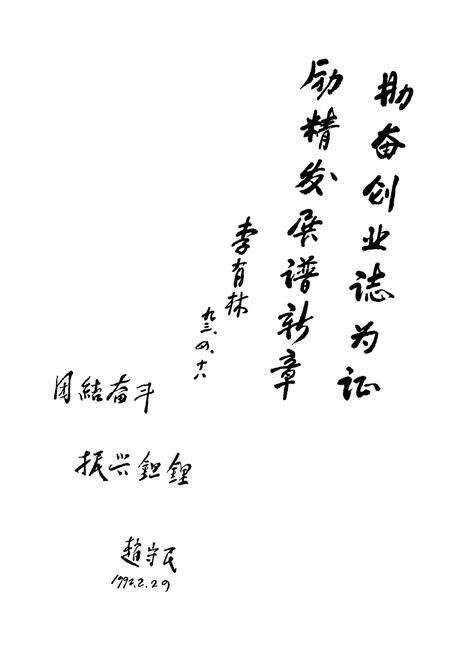 勤奋创业誌为证
励精发展谱新章
李有林
九三、四、十八
团結奋斗
振兴鉭鋰
趙守民
1992.2.29